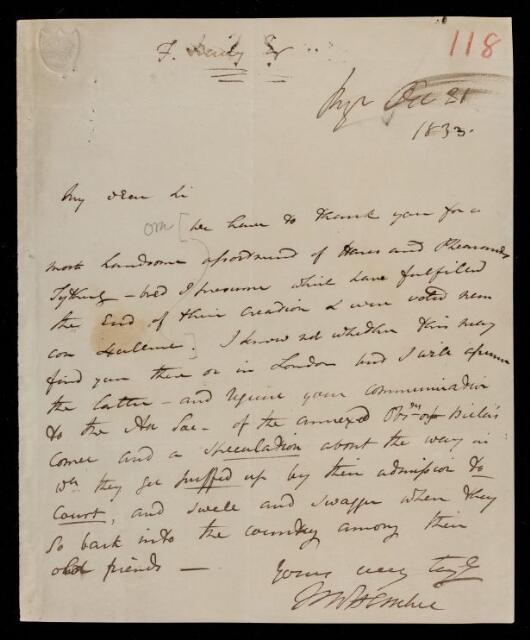 F. Baily Esqr
118
Decr 21
1833.
My dear Sir
Om [we have to thank you for a
most handsome assortment of Hares and Pheasants
bred I presume which have fulfilled
the End of their Creation & were voted nem
con excellent.] I know not whether this may
find you there or in London but I will assume
the latter – and require your communication
to the Ast Soc – of the annexed Obsns of Biela's
Comet and a speculation about the way in
wh they get puffed up by their admission to
Court, and swell and swagger when they
go back into the country among their
old friends —
Yours very truly